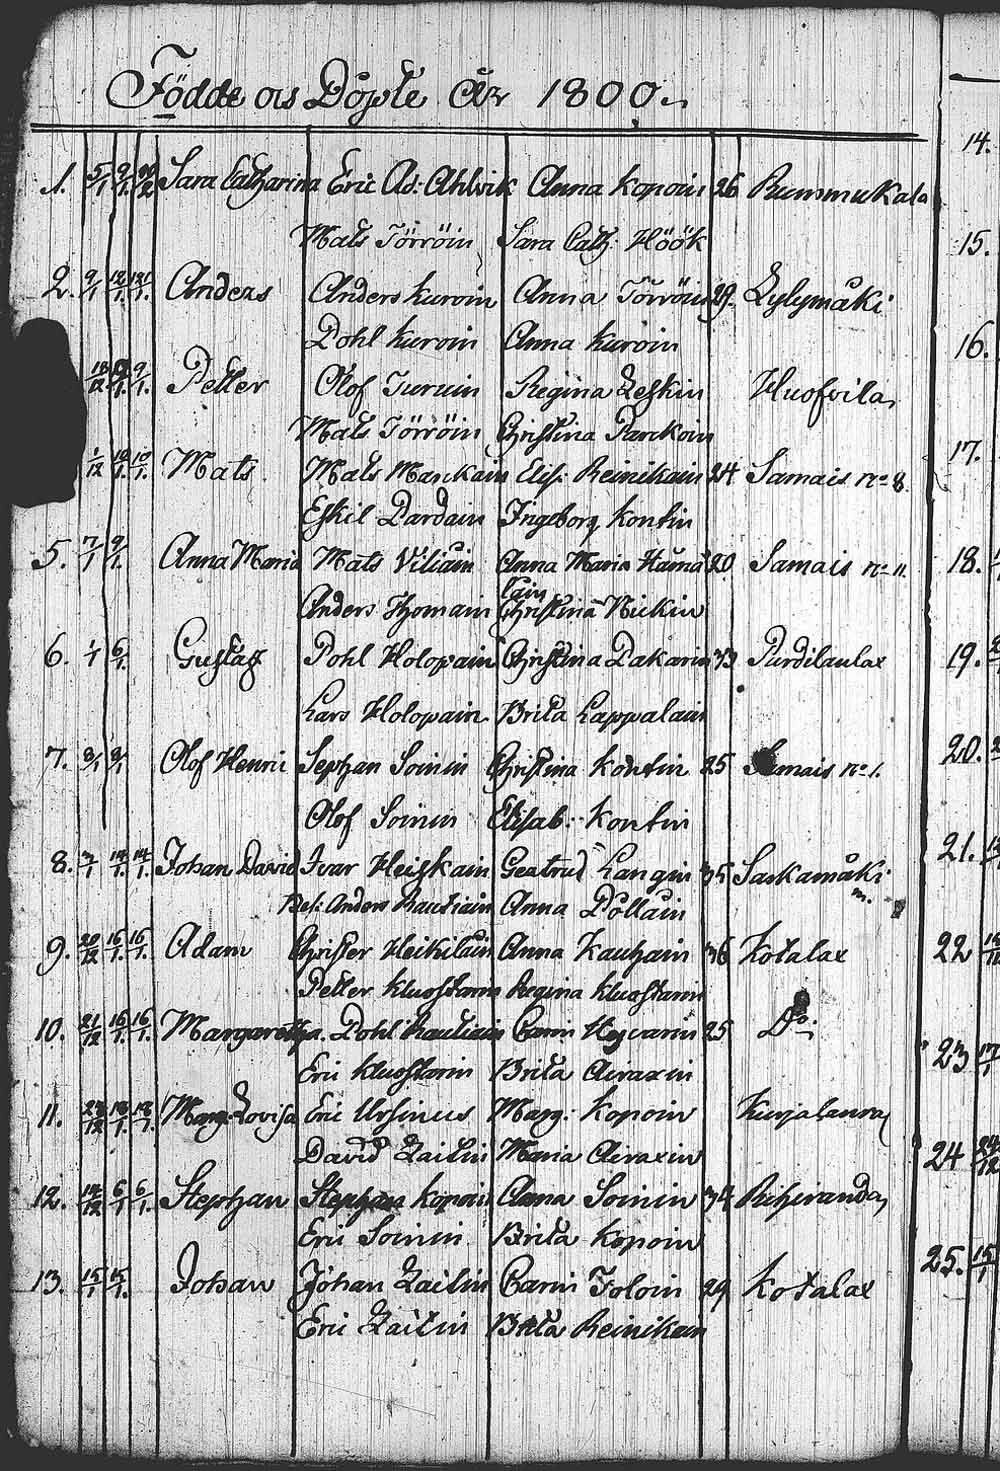 Födde och Döpte År 1800
1. 5/1 9/1 Sara Catharina Eric Ad: Ahlvik Anna Kopoin 26 Rummukala
Mats Törröin Sara Cath: Höök
2. 9/1 12/1 12/1 Anders Anders Kuroin Anna Törröin 29. Lylymäki
Pohl Kuroin Anna Kuroin
18/12 9/1 Petter Olof Turuin Regina Leskin Huosvila
Mats Törröin Christina Parckoin
1/12 10/1 10/1 Mats Mats Manckain Elis: Reinikain 24 Samais no 8.
Eskil Pardain Ingeborg Kontin
5. 7/1 9/1 Anna Maria Mats Viliain Anna Maria Hämä 20 Samais no 11.
läin
Anders Tyomain Christina Nickin
6. 1/1 6/1 Gustaf Pohl Holopain Christina Pakarin 33 Purdilaulax
Lars Holopain Brita Lappalain
7. 8/1 8/1 Olof Henric Stephan Soinin Christina Kontin 25 Samais no 1.
Olof Soinin Elisab: Kontin
8. 7/1 14/1 14/1 Johan David Ivar Heiskain Geatrud Langin 35 Saskamäki
m.
Bef: Anders Rautiain Anna Pöllain
9. 20/12 16/1 16/1 Adam Christer Heikilain Anna Kauhain 36 Kotalax
Petter Kluostarin Regina Kluostarin
10. 21/12 16/1 16/1 Margaretha Pohl Rautiain Carin Hyvarin 25 Do:
Eric Kluostarin Brita Airaxin
11. 28/12 18/1 18/1 Marg: Lovisa Eric Ursinus Marg: Kopoin Kurjalanra
David Laitin Maria Airaxin
12. 14/12 6/1 6/1 Stephan Stephan Kopoin Anna Soinin 34 Rihiranda
Eric Soinin Brita Kopoin
13. 15/1 15/1 Johan Johan Laitin Carin Toloin 29 Kotalax
Eric Laitin Brita Reinikain
14.
15.
16.
17.
18.
19.
20.
21.
22
23 17/1
24 24/12
25. 15/1